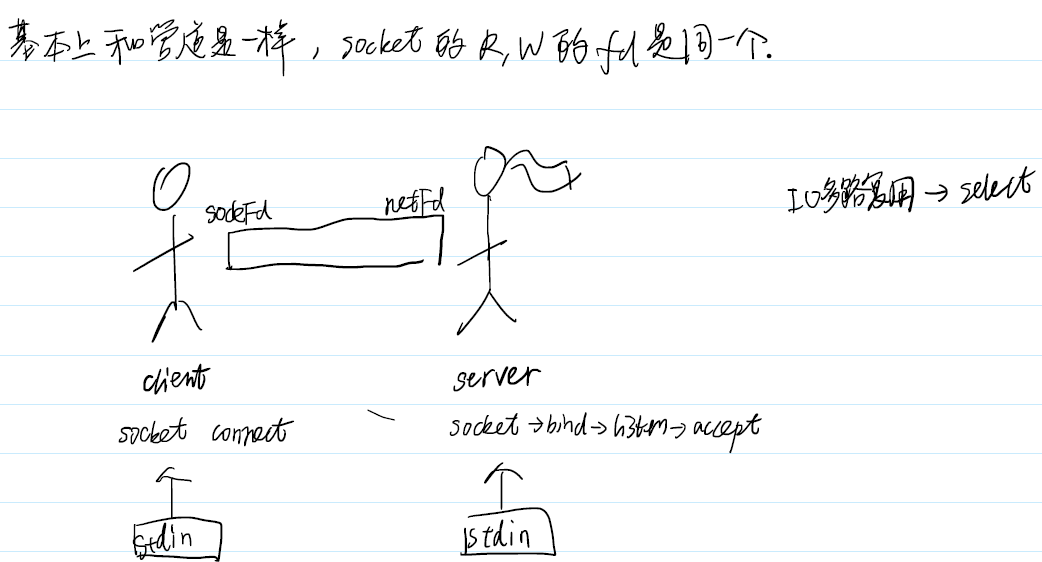 基本上和管道是一样，socket 的 R,W 的 fd 是同一个.
sockFd netFd
IO多路复用→select
client server
socket connect socket→bind→listen→accept
stdin stdin